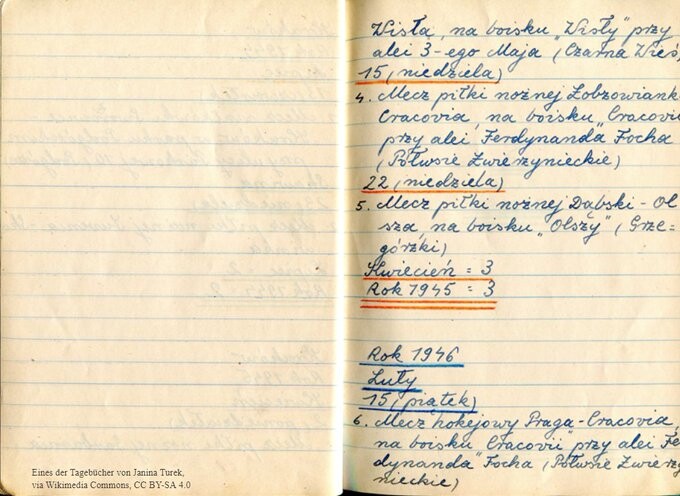 Wisła, na boisku „Wisły" przy
alei 3-ego Maja (Czarna Wieś)
15 (niedziela)
4. Mecz piłki nożnej Łobzowianka
Cracovia, na boisku „Cracovii
przy alei Ferdynanda Focha
(Półwsie Zwierzynieckie)
22 (niedziela)
5. Mecz piłki nożnej Dąbski - Ol
sza, na boisku „Olszy" (Grze=
górzki)
Kwiecień = 3
Rok 1945 = 3
Rok 1946
Luty
15 (piątek)
6. Mecz hokejowy Praga-Cracovia,
na boisku „Cracovii" przy alei Fe
dynanda" Focha (Półwsie Zwierzy
nieckie)
Eines der Tagebücher von Janina Turek,
via Wikimedia Commons, CC BY-SA 4.0